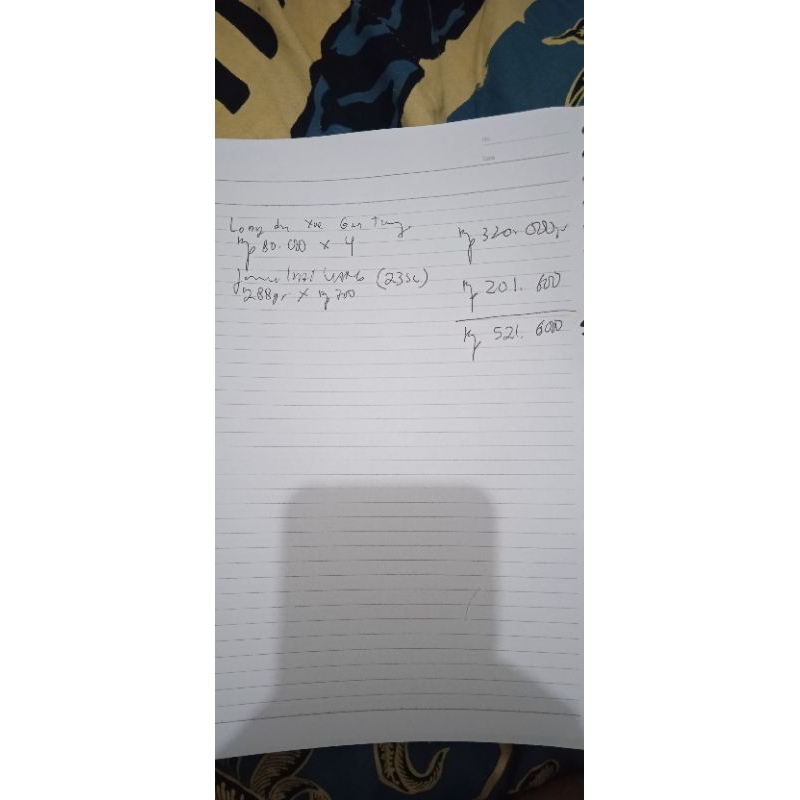 No.
Date
Long dn Xue Gin Tung
Rp 80.000 x 4 Rp 320.000,-
(23sc) Rp 201.600
288gr x Rp 700
Rp 521.600